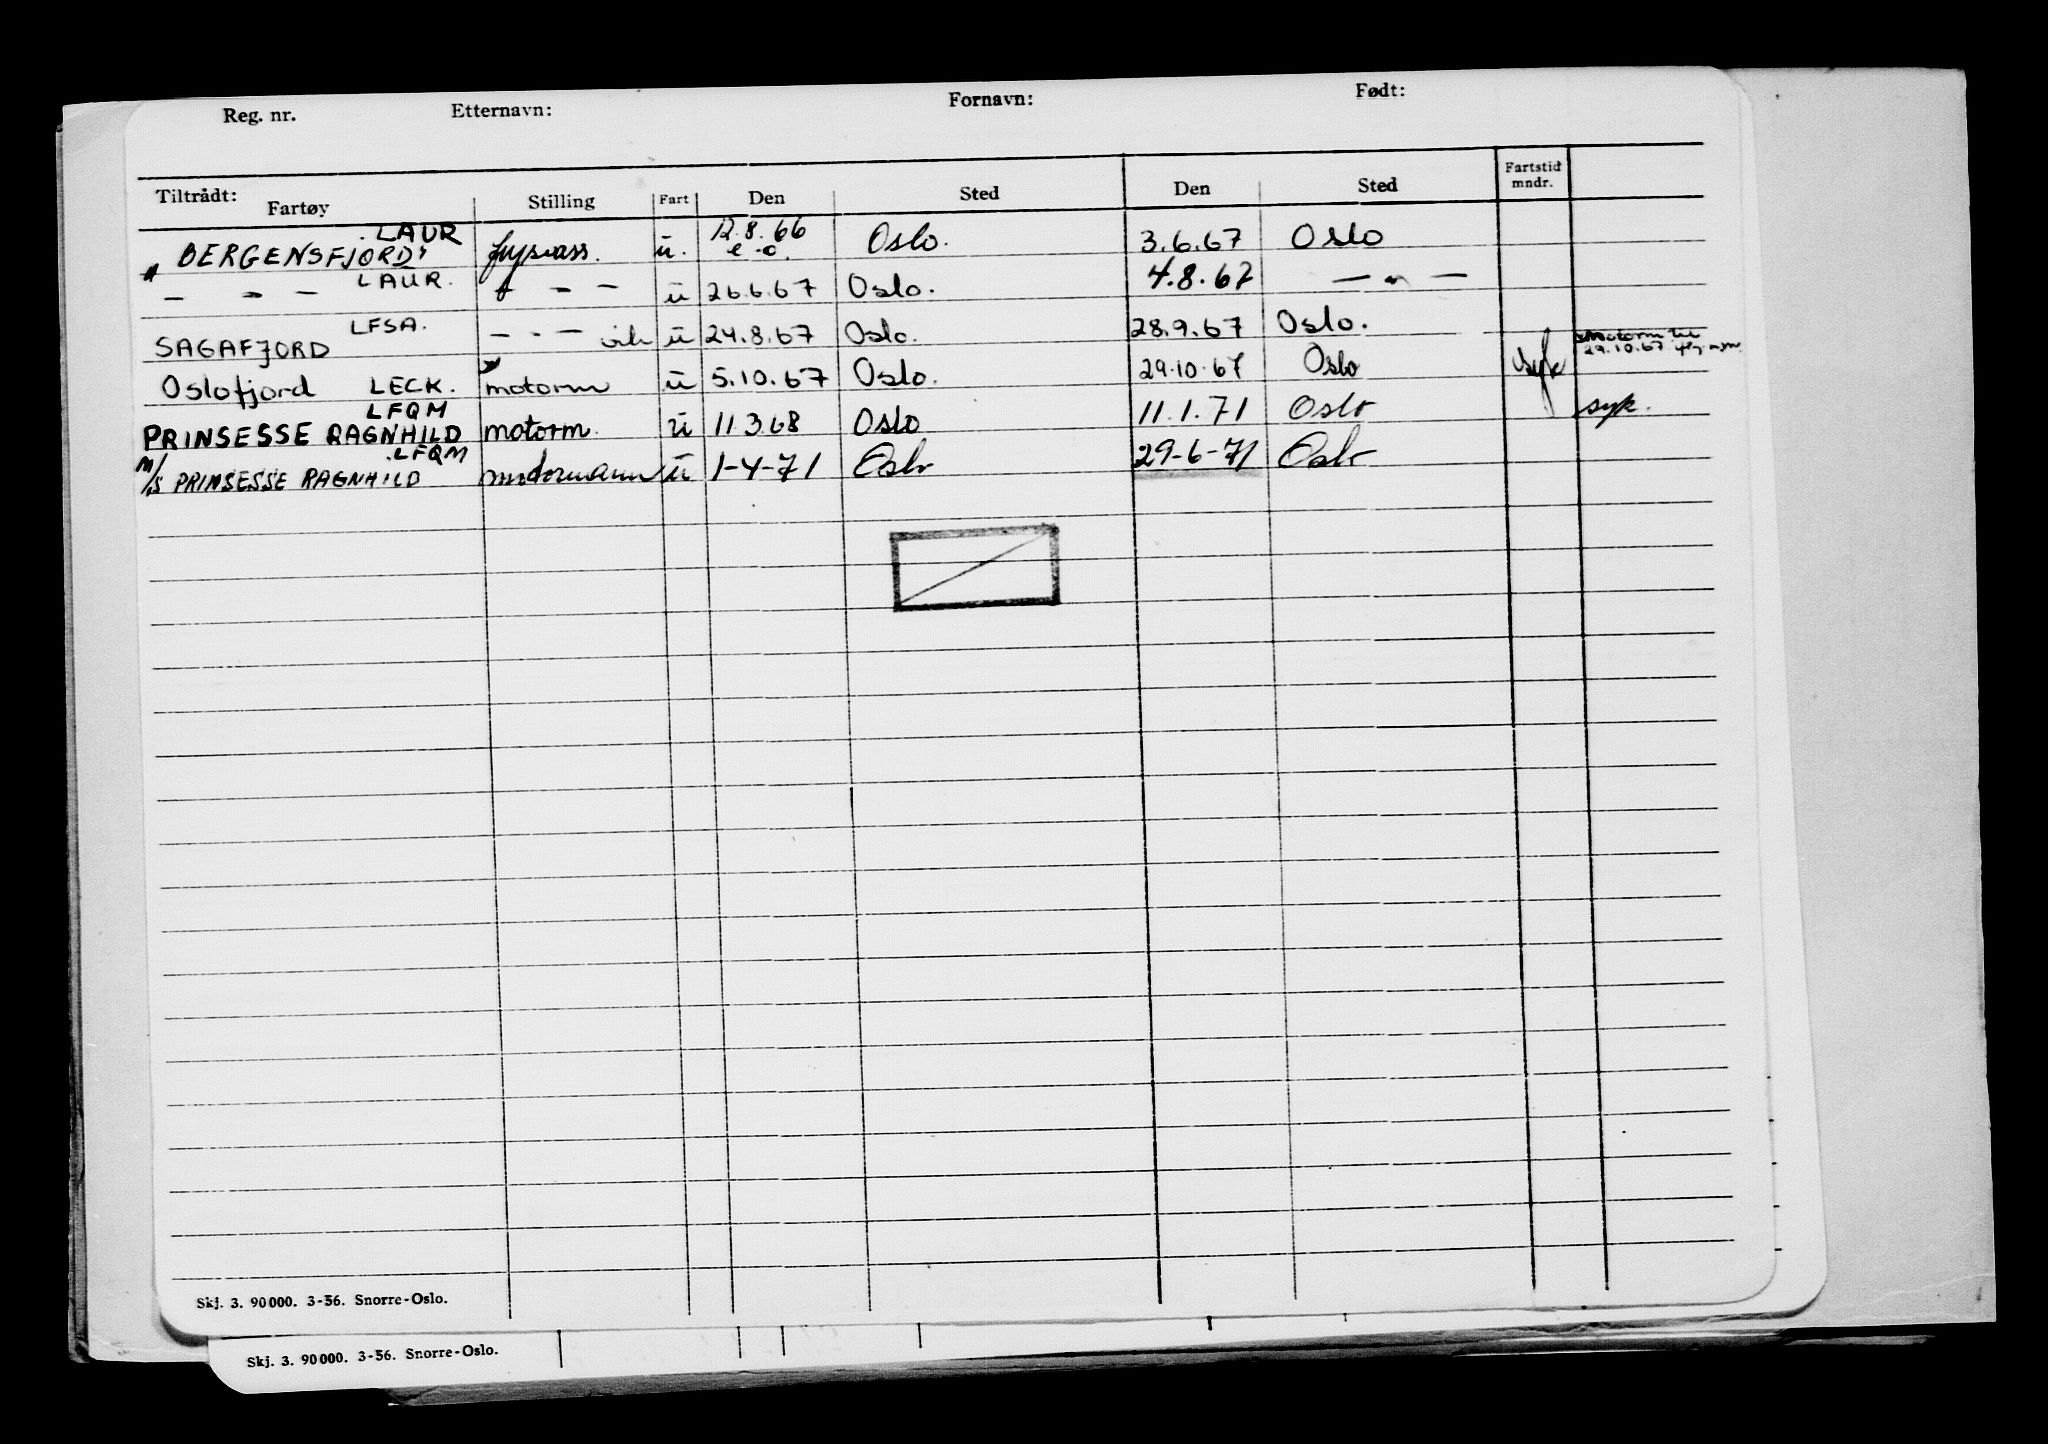 Reg. nr. Etternavn: Fornavn: Født:
Tiltrådt: Fartøy Stilling Fart Den Sted Den Sted Fartstid mndr.
" BERGENSFJORD" LAUR fryseass. u. 12.8.66 e.o. Oslo. 3.6.67 Oslo
— " — LAUR. — " — u 26.6.67 Oslo. 4.8.67 — " —
SAGAFJORD LFSA. — " — u 24.8.67 Oslo. 28.9.67 Oslo.
Oslofjord LECK. motorm u 5.10.67 Oslo. 29.10.67 Oslo syk motorm til 29.10.67
PRINSESSE RAGNHILD LFQM motorm. u 11.3.68 Oslo 11.1.71 Oslo syk.
M/S PRINSESSE RAGNHILD LFQM motormann u 1-4-71 Oslo 29-6-71 Oslo
Skj. 3. 90000. 3-56. Snorre-Oslo.
Skj. 3. 90000. 3-56. Snorre-Oslo.